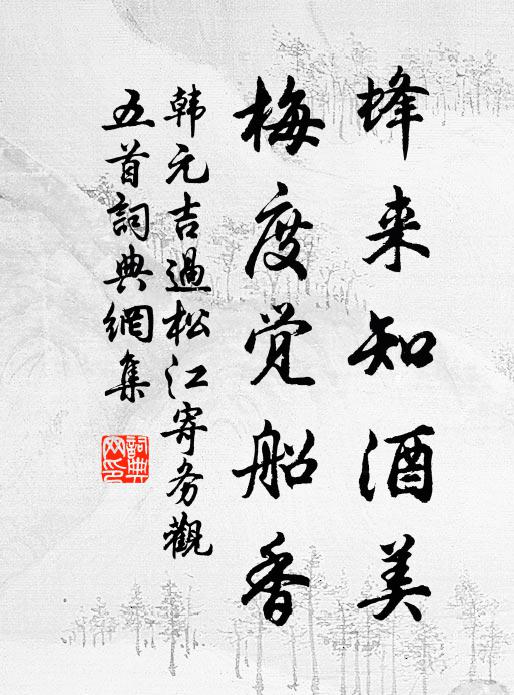 蜂来知酒美
梅度觉船香
韩元吉過松江寄务觀
五首詞典網集
詞典网印